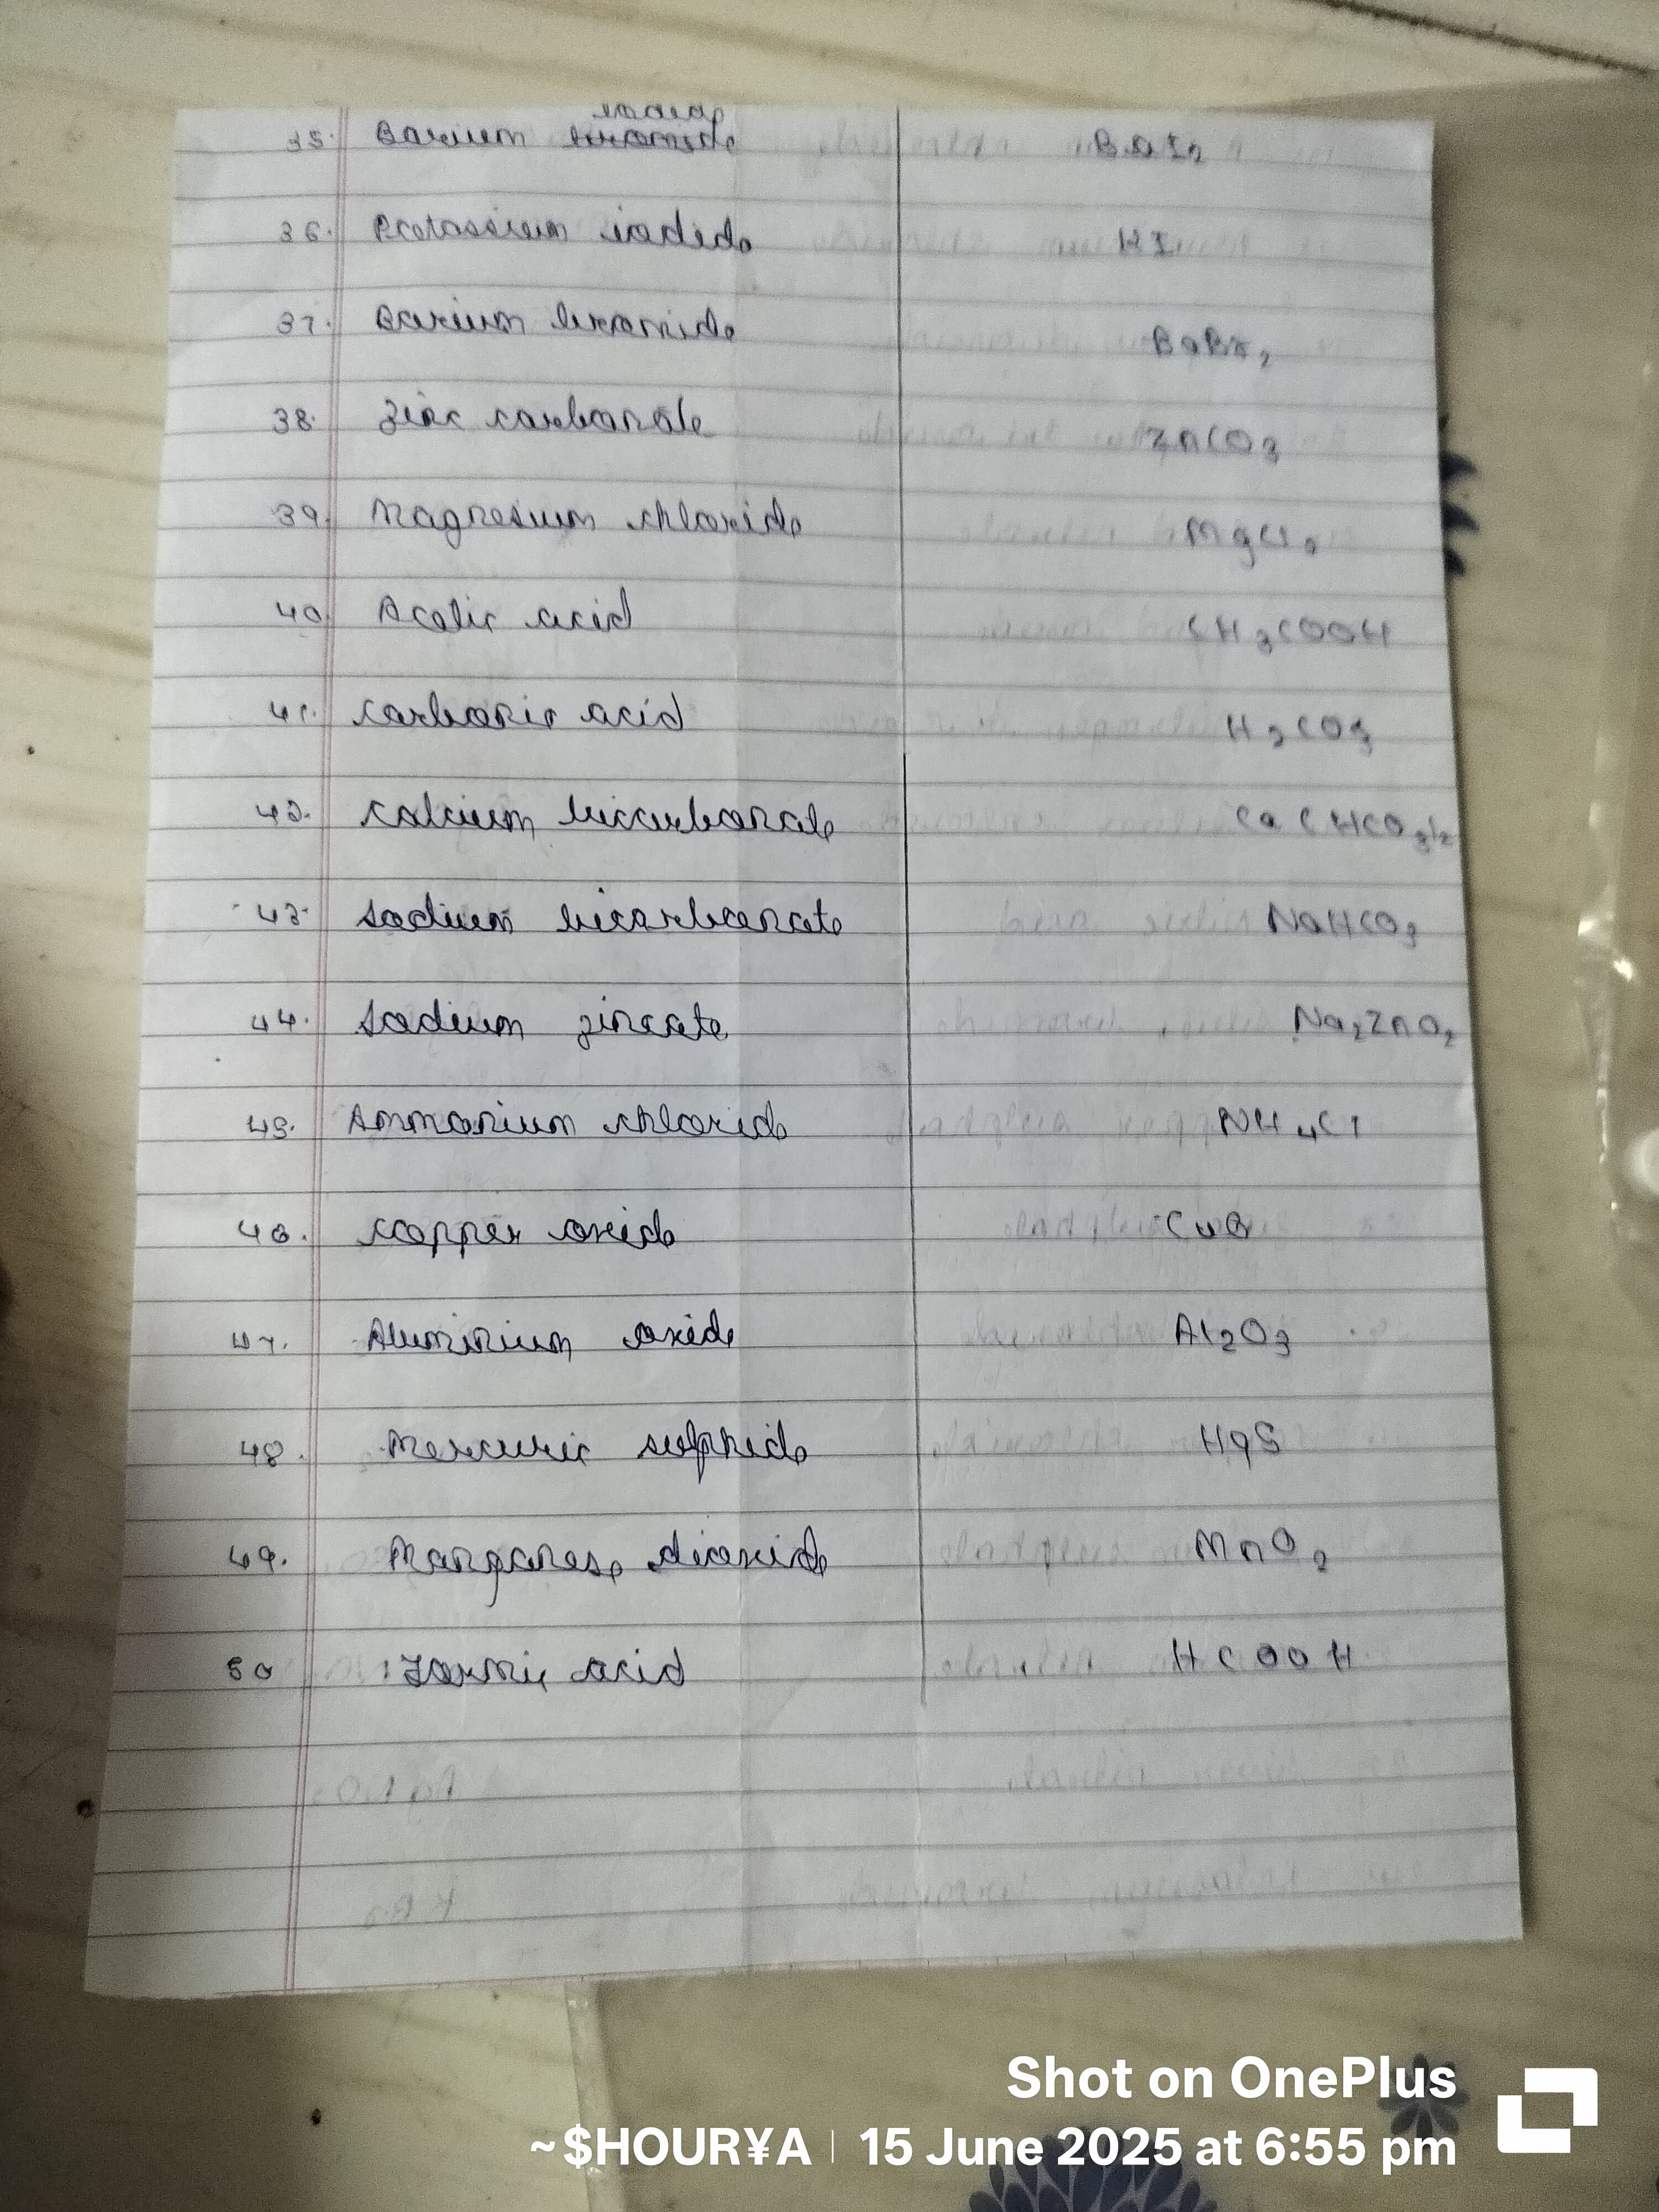 35. Barium iodide BaI2
36. Potassium iodide KI
37. Barium bromide BaBr2
38. Zinc carbonate ZnCO3
39. Magnesium chloride MgCl2
40. Acetic acid CH3COOH
41. carbonic acid H2CO3
42. calcium bicarbonate Ca(HCO3)2
43. sodium bicarbonate NaHCO3
44. sodium zincate Na2ZnO2
45. Ammonium chloride NH4Cl
46. copper oxide CuO
47. Aluminium oxide Al2O3
48. Mercuric sulphide HgS
49. Manganese dioxide MnO2
50 Formic acid HCOOH
Shot on OnePlus
~$HOUR¥A | 15 June 2025 at 6:55 pm